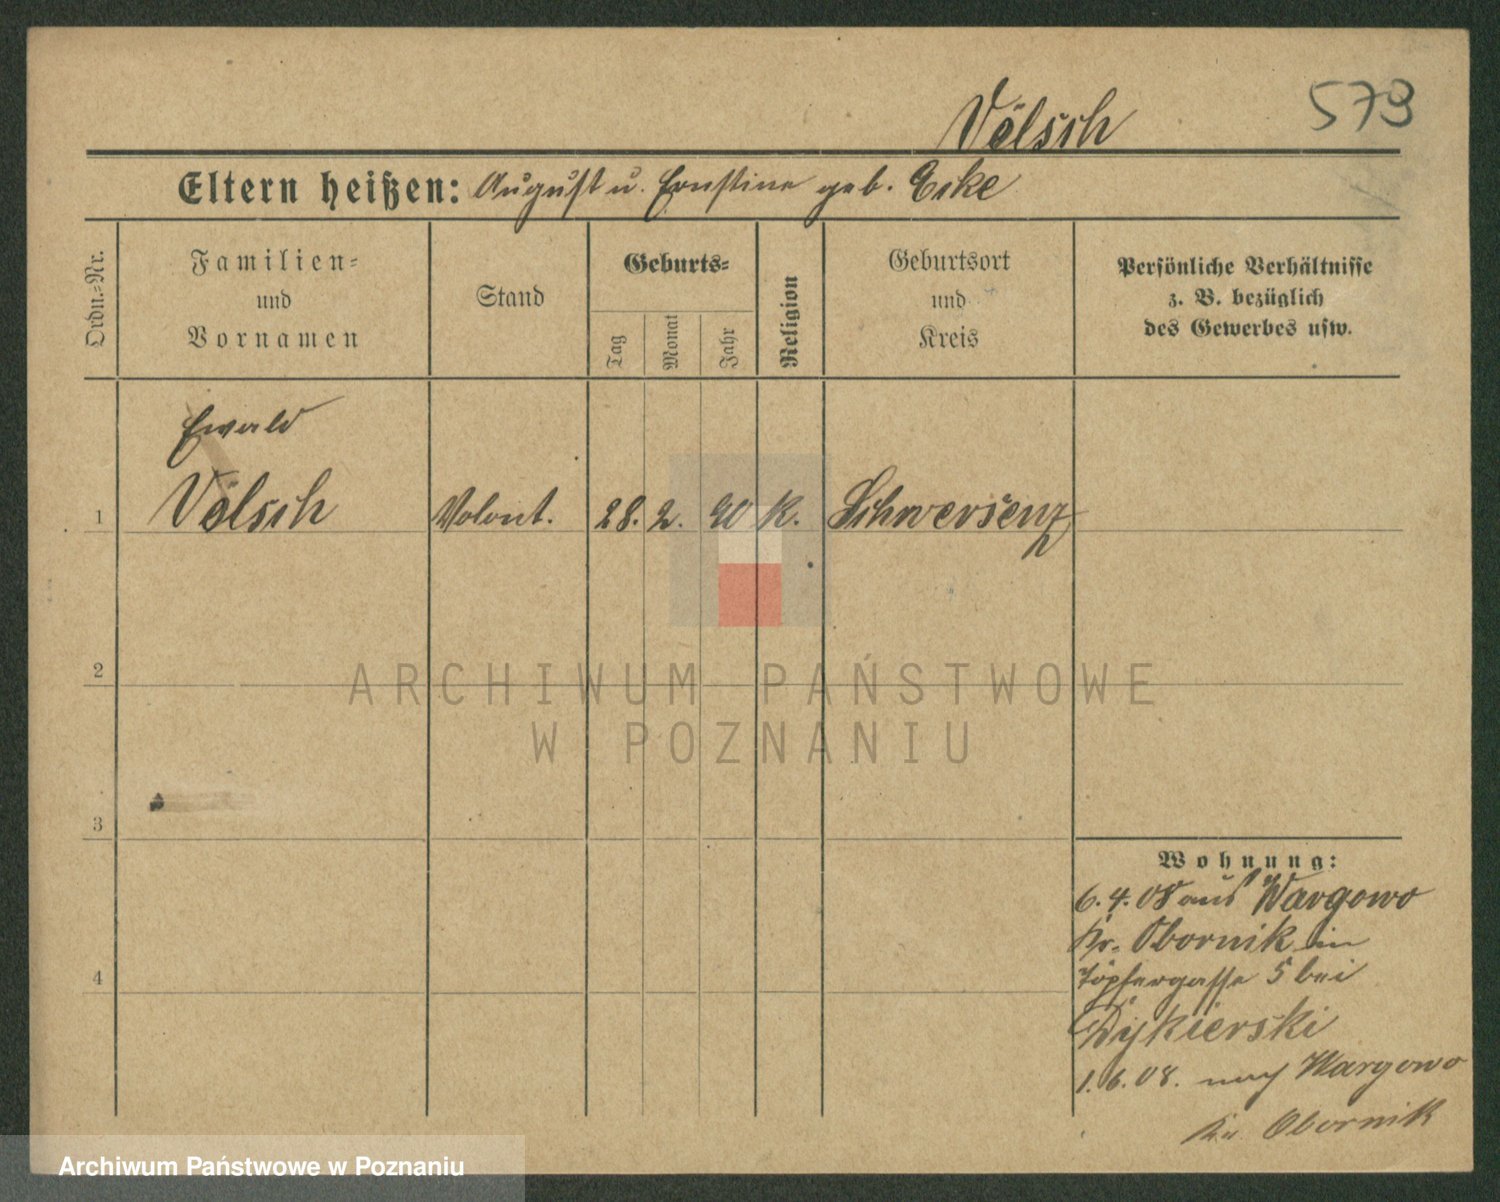 Völsch
573
Eltern heißen: August u. Ernstine geb. Eske
Ordn.-Nr.
Familien-
und
Vornamen
Stand
Geburts-
Tag
Monat
Jahr
Religion
Geburtsort
und
Kreis
Persönliche Verhältnisse
z. B. bezüglich
des Gewerbes usw.
Ewald
1 Völsch Volont. 28. 2. 90 K. Schwersenz
2
3
4
Wohnung:
6.4.08 aus Wargowo
Kr. Obornik in
Töpfergasse 5 bei
Dykierski
1.6.08. nach Wargowo
Kr. Obornik
ARCHIWUM PAŃSTWOWE
W POZNANIU
Archiwum Państwowe w Poznaniu